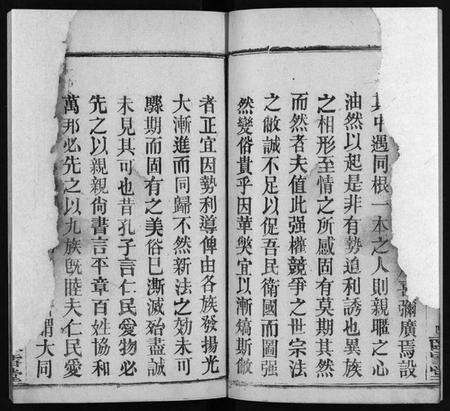 莫彌廣焉設
其中遇同根一本之人則親曖之心
油然以起是非有勢迫利誘也異族
之相形至情之所感固有莫期其然
而然者夫值此强權競爭之世宗法
之敝誠不足以促吾民衛國而圖强
然變俗貴乎因革奠宜以漸矯斯敝
者正宜因勢利導俾由各族發揚光
大漸進而同歸不然新法之効未可
驟期而固有之美俗已澌滅殆盡誠
未見其可也昔孔子言仁民愛物必
先之以親親尙書言平章百姓協和
萬邦必先之以九族旣睦夫仁民愛
謂大同